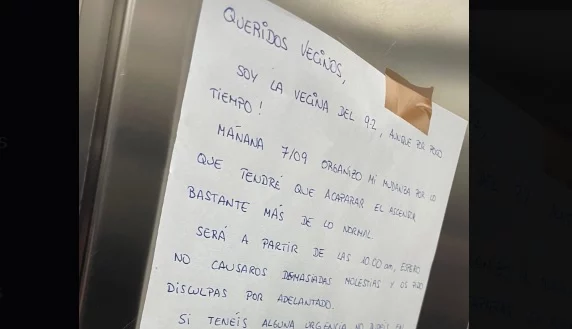 QUERIDOS VECINOS,
SOY LA VECINA DEL 9-2, AUNQUE POR POCO
TIEMPO!
MAÑANA 7/09 ORGANIZO MI MUDANZA POR LO
QUE TENDRÉ QUE ACAPARAR EL ASCENSOR
BASTANTE MÁS DE LO NORMAL.
SERÁ A PARTIR DE LAS 10.00 am, ESPERO
NO CAUSAROS DEMASIADAS MOLESTIAS Y OS PIDO
DISCULPAS POR ADELANTADO.
SI TENÉIS ALGUNA URGENCIA NO